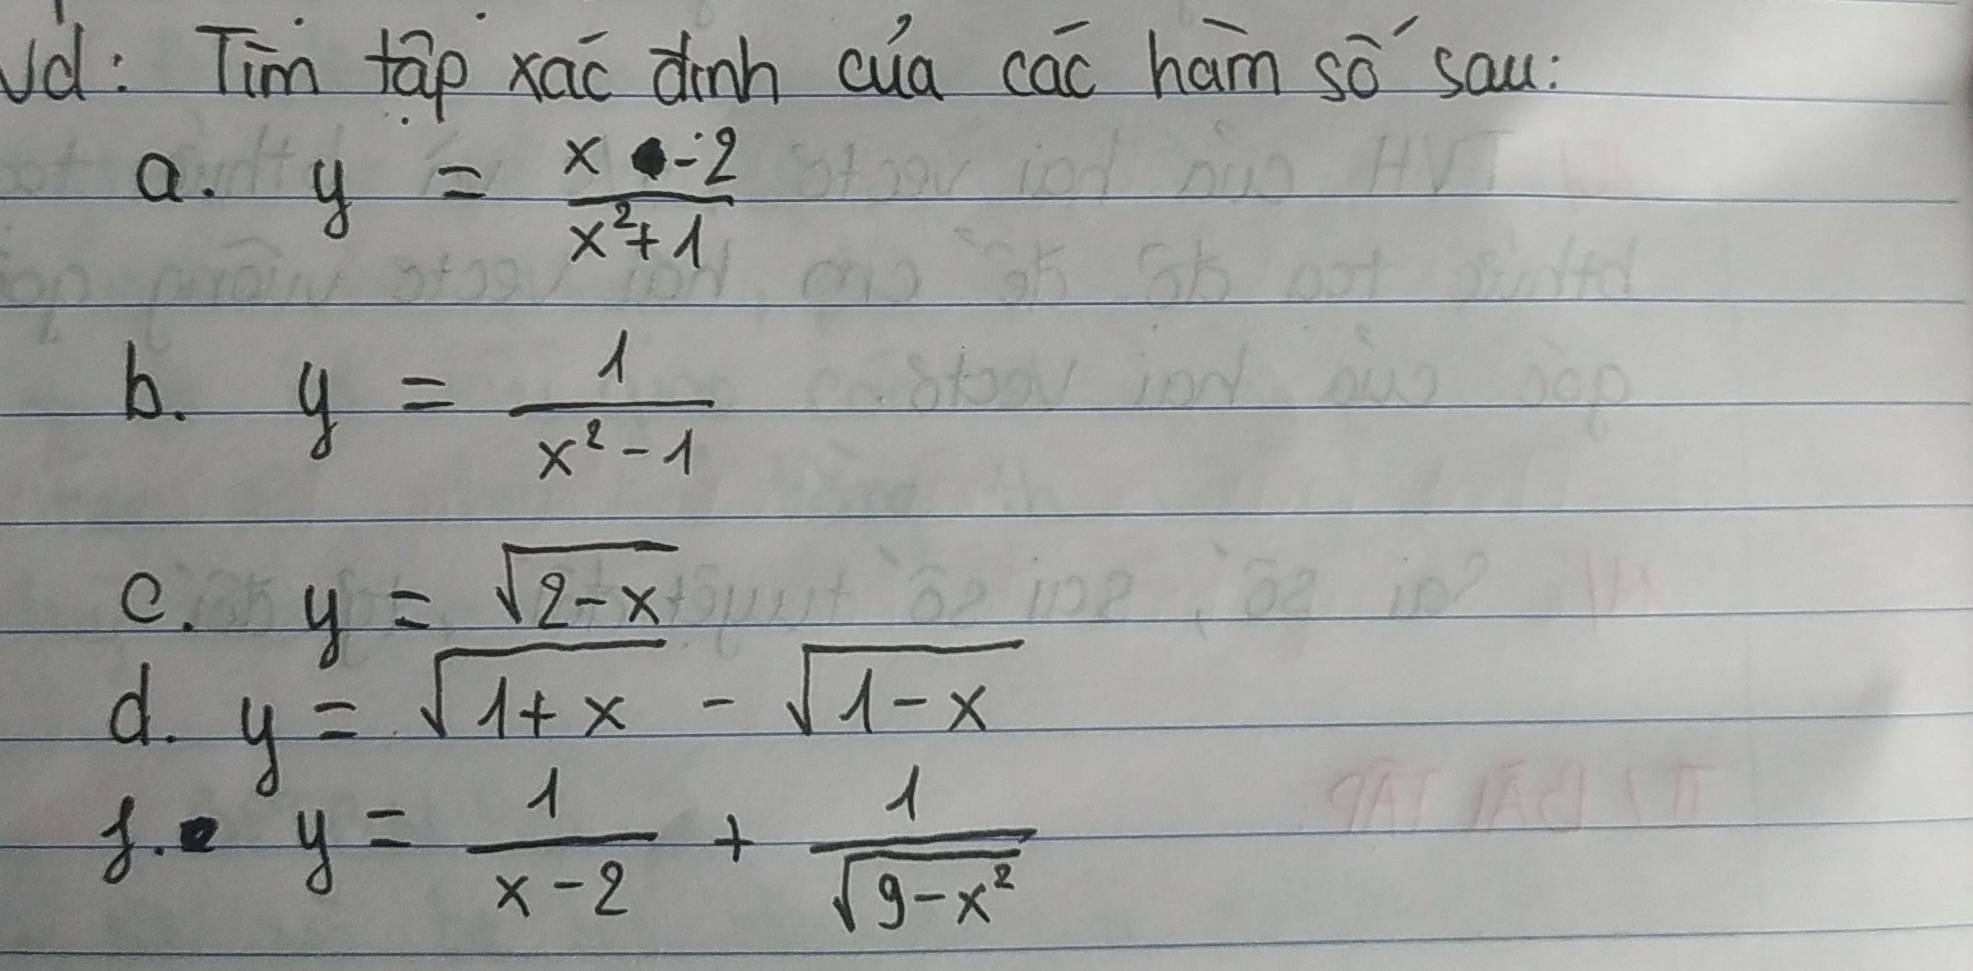 Vd: Tìm tập xác định của các hàm số sau:
a. y = \frac{x - 2}{x² + 1}
b. y = \frac{1}{x² - 1}
c. y = \sqrt{2 - x}
d. y = \sqrt{1 + x} - \sqrt{1 - x}
f. y = \frac{1}{x - 2} + \frac{1}{\sqrt{9 - x²}}